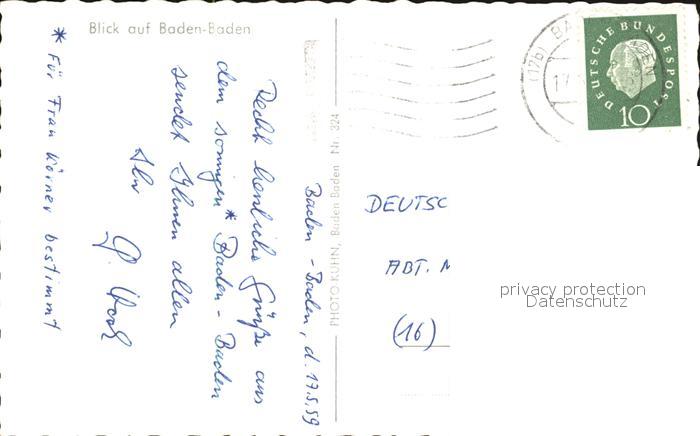 Blick auf Baden-Baden
Baden-Baden, d. 17.5.59
Recht herzliche Grüße aus
dem sonnigen* Baden-Baden
sendet Ihnen allen
Ihr
* Für Frau Körner bestimmt
PHOTO-KUHN, Baden-Baden Nr. 324
(17b) BA
DEN
17
DEUTSCHE BUNDESPOST
10
DEUTSC
ABT.
(16)
privacy protection
Datenschutz